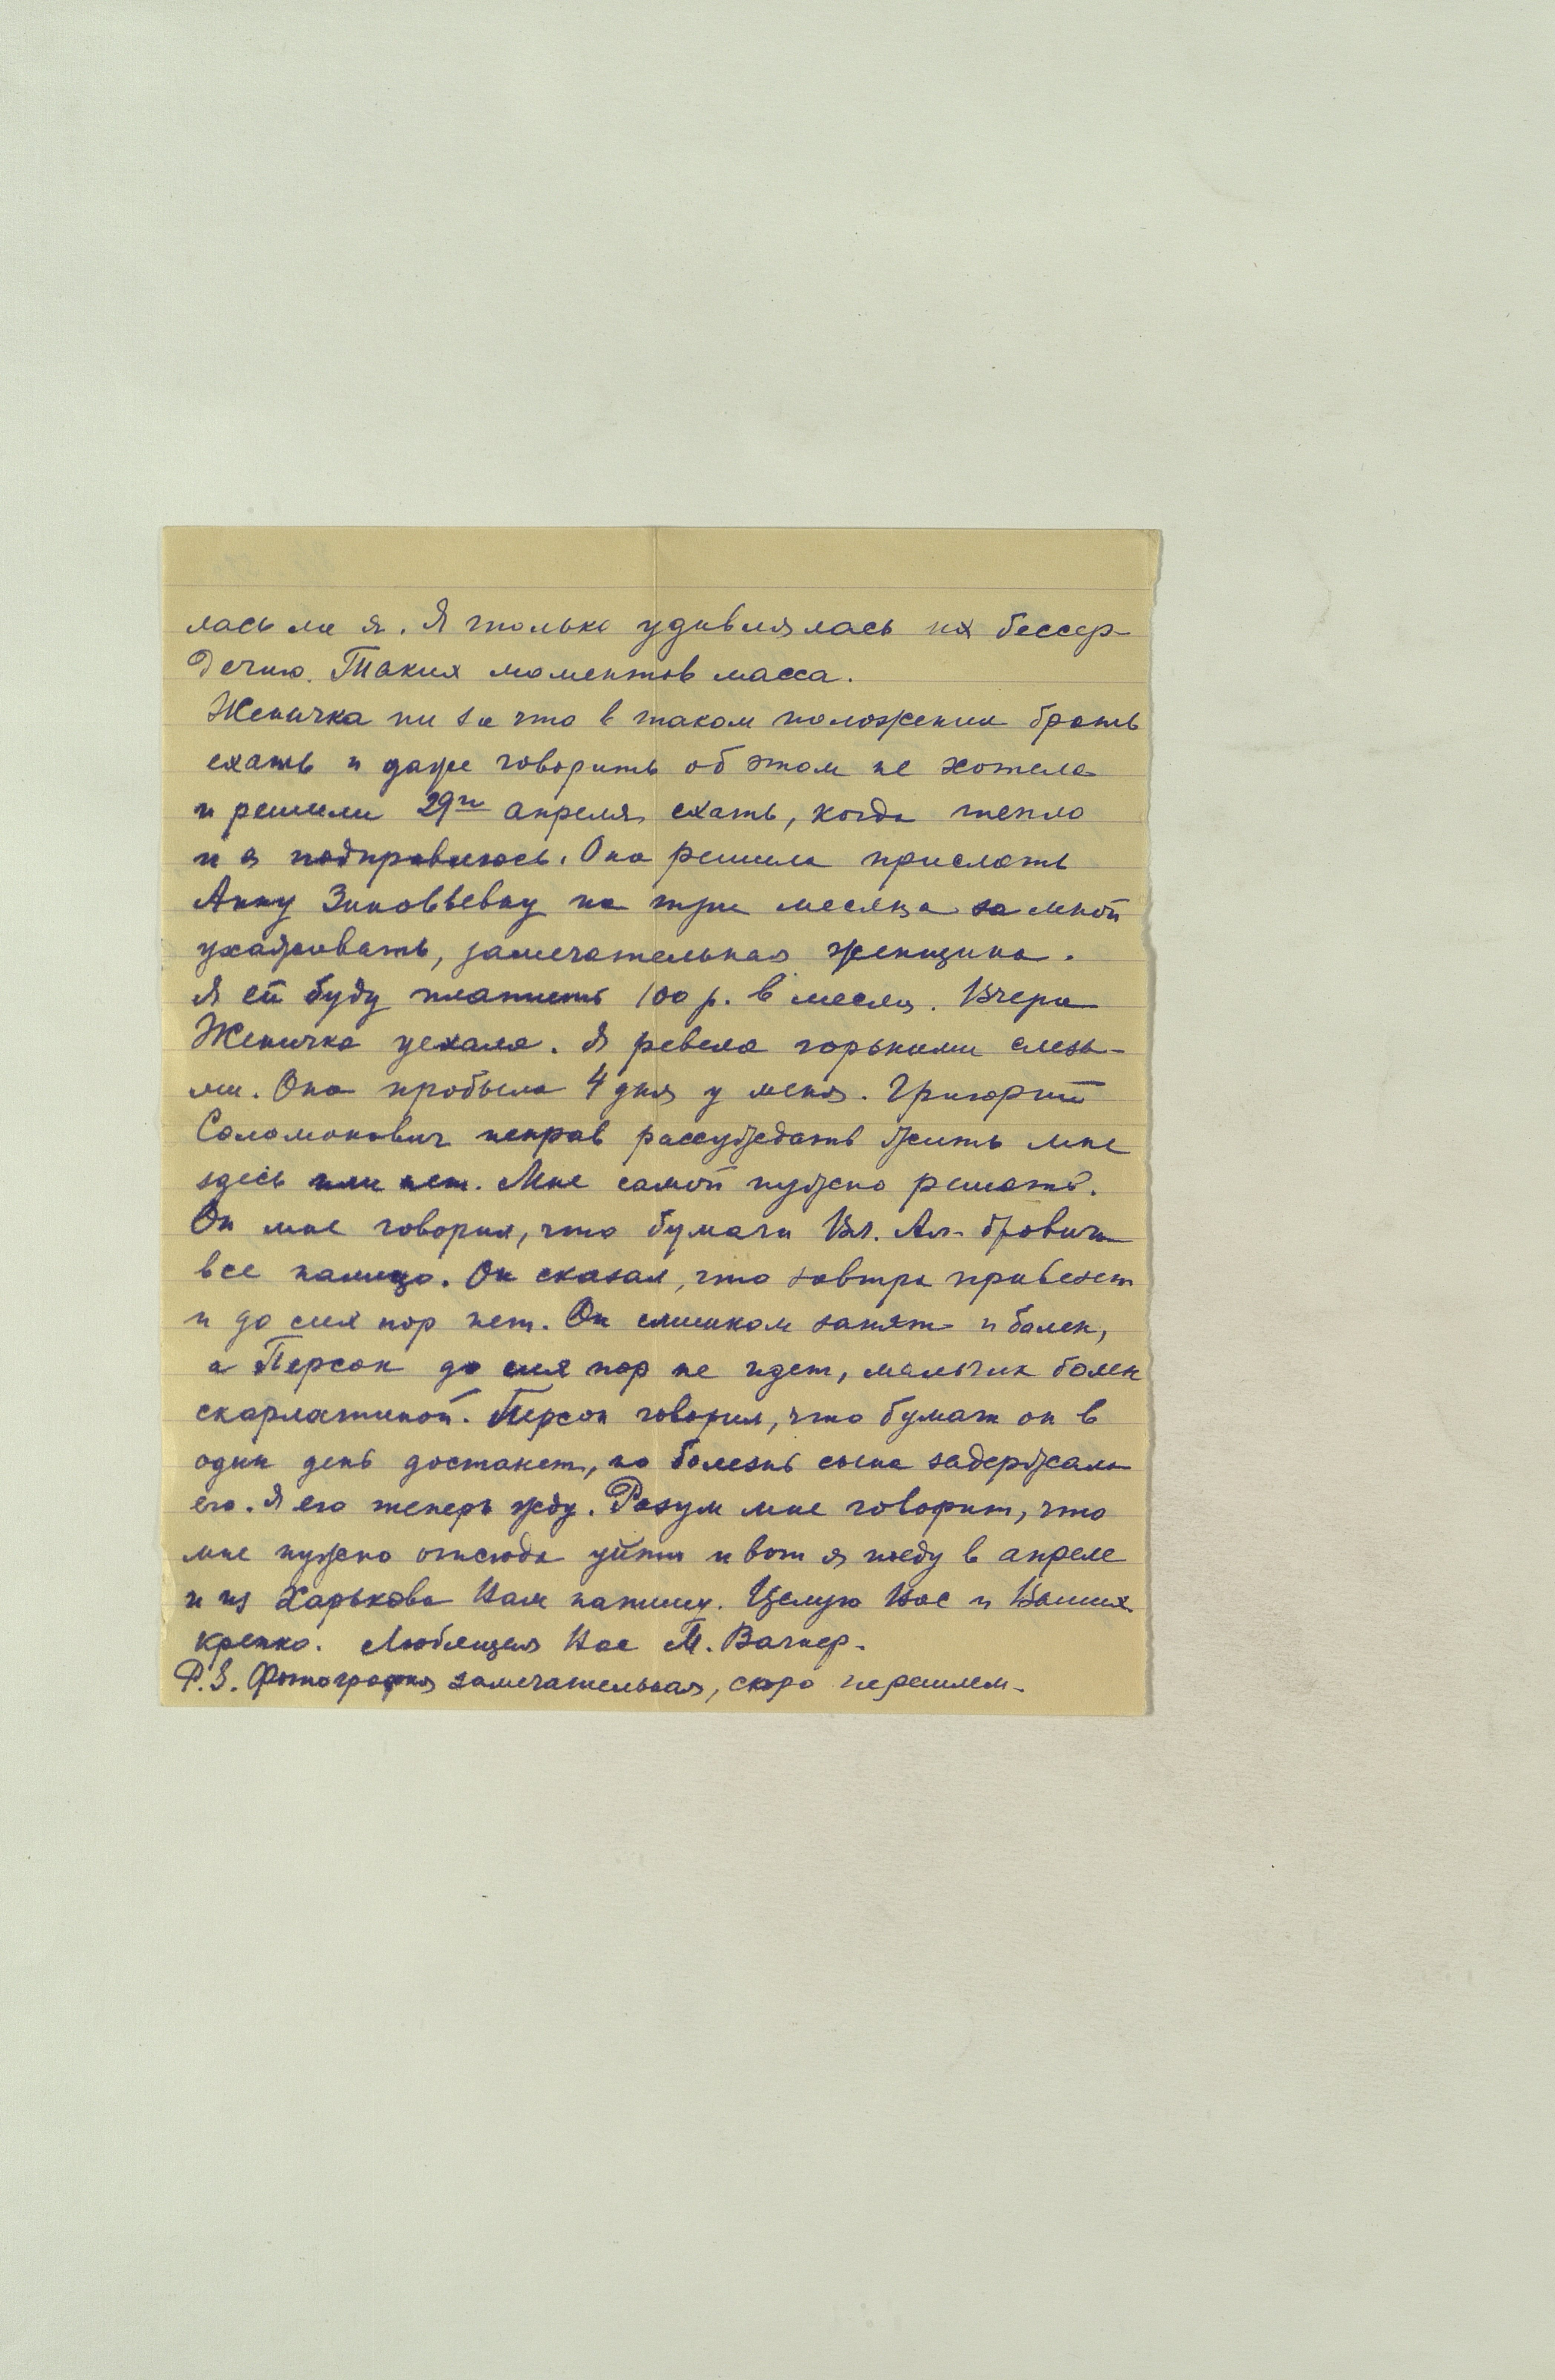 лась ли я. Я только удивлялась их бессер-
дечию. Таких моментов масса.
Женичка ни за что в таком положении брать
ехать и даже говорить об этом не хотела
и решили 29го апреля ехать, когда тепло
и я подправлюсь. Она решила прислать
Анну Зиновьевну на три месяца за мной
ухаживать, замечательная женщина.
Я ей буду платить 100 р. в месяц. Вчера
Женичка уехала. Я ревела горькими слезь-
ми. Она пробыла 4 дня у меня. Григорий
Соломонович неправ рассуждать жить мне
здесь или нет. Мне самой нужно решать.
Он мне говорил, что бумаги Вл. Ал-дровича
все налицо. Он сказал, что завтра привезет
и до сих пор нет. Он слишком занят и болен,
а Персон до сих пор не идет, мальчик болен
скарлатиной. Персон говорил, что бумаги он в
один день достанет, но болезнь сына задержала
его. Я его теперь жду. Разум мне говорит, что
мне нужно отсюда уйти и вот я поеду в апреле
и из Харькова Вам напишу. Целую Вас и Ваших
крепко. Любящая Вас М. Вагнер.
P.S. Фотография замечательная, скоро перешлем.